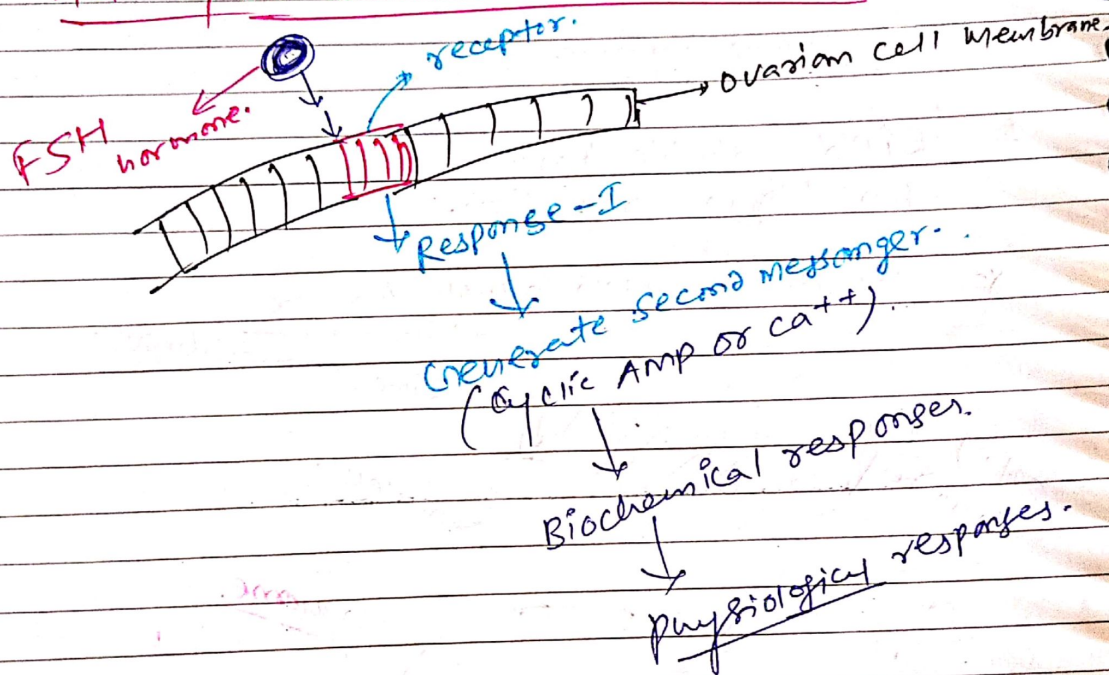 receptor.
ovarian cell membrane.
FSH hormone.
Response-I
Generate second messanger.
(Cyclic AMP or ca++).
Biochemical responses.
physiological responses.